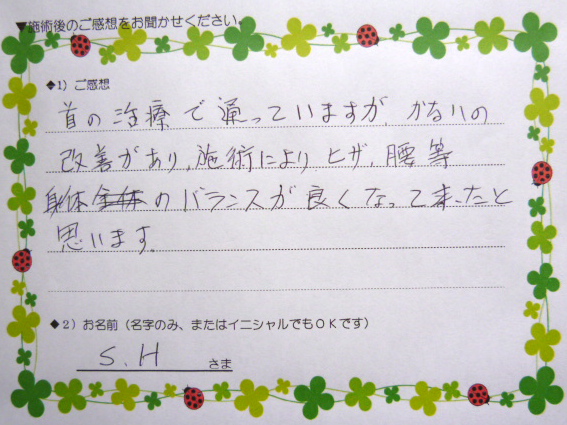 ▼施術後のご感想をお聞かせください。
◆1）ご感想
首の治療で通っていますが、かなりの
改善があり、施術により ヒザ、腰等
身体全体のバランスが良くなって来たと
思います。
◆2）お名前（名字のみ、またはイニシャルでもOKです）
S、H さま